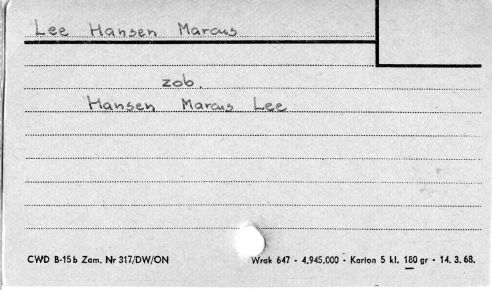 Lee Hansen Marcus
zob.
Hansen Marcus Lee
CWD B-15b Zam. Nr 317/DW/ON Wrak 647 - 4,945.000 - Karton 5 kl. 180 gr - 14. 3. 68.